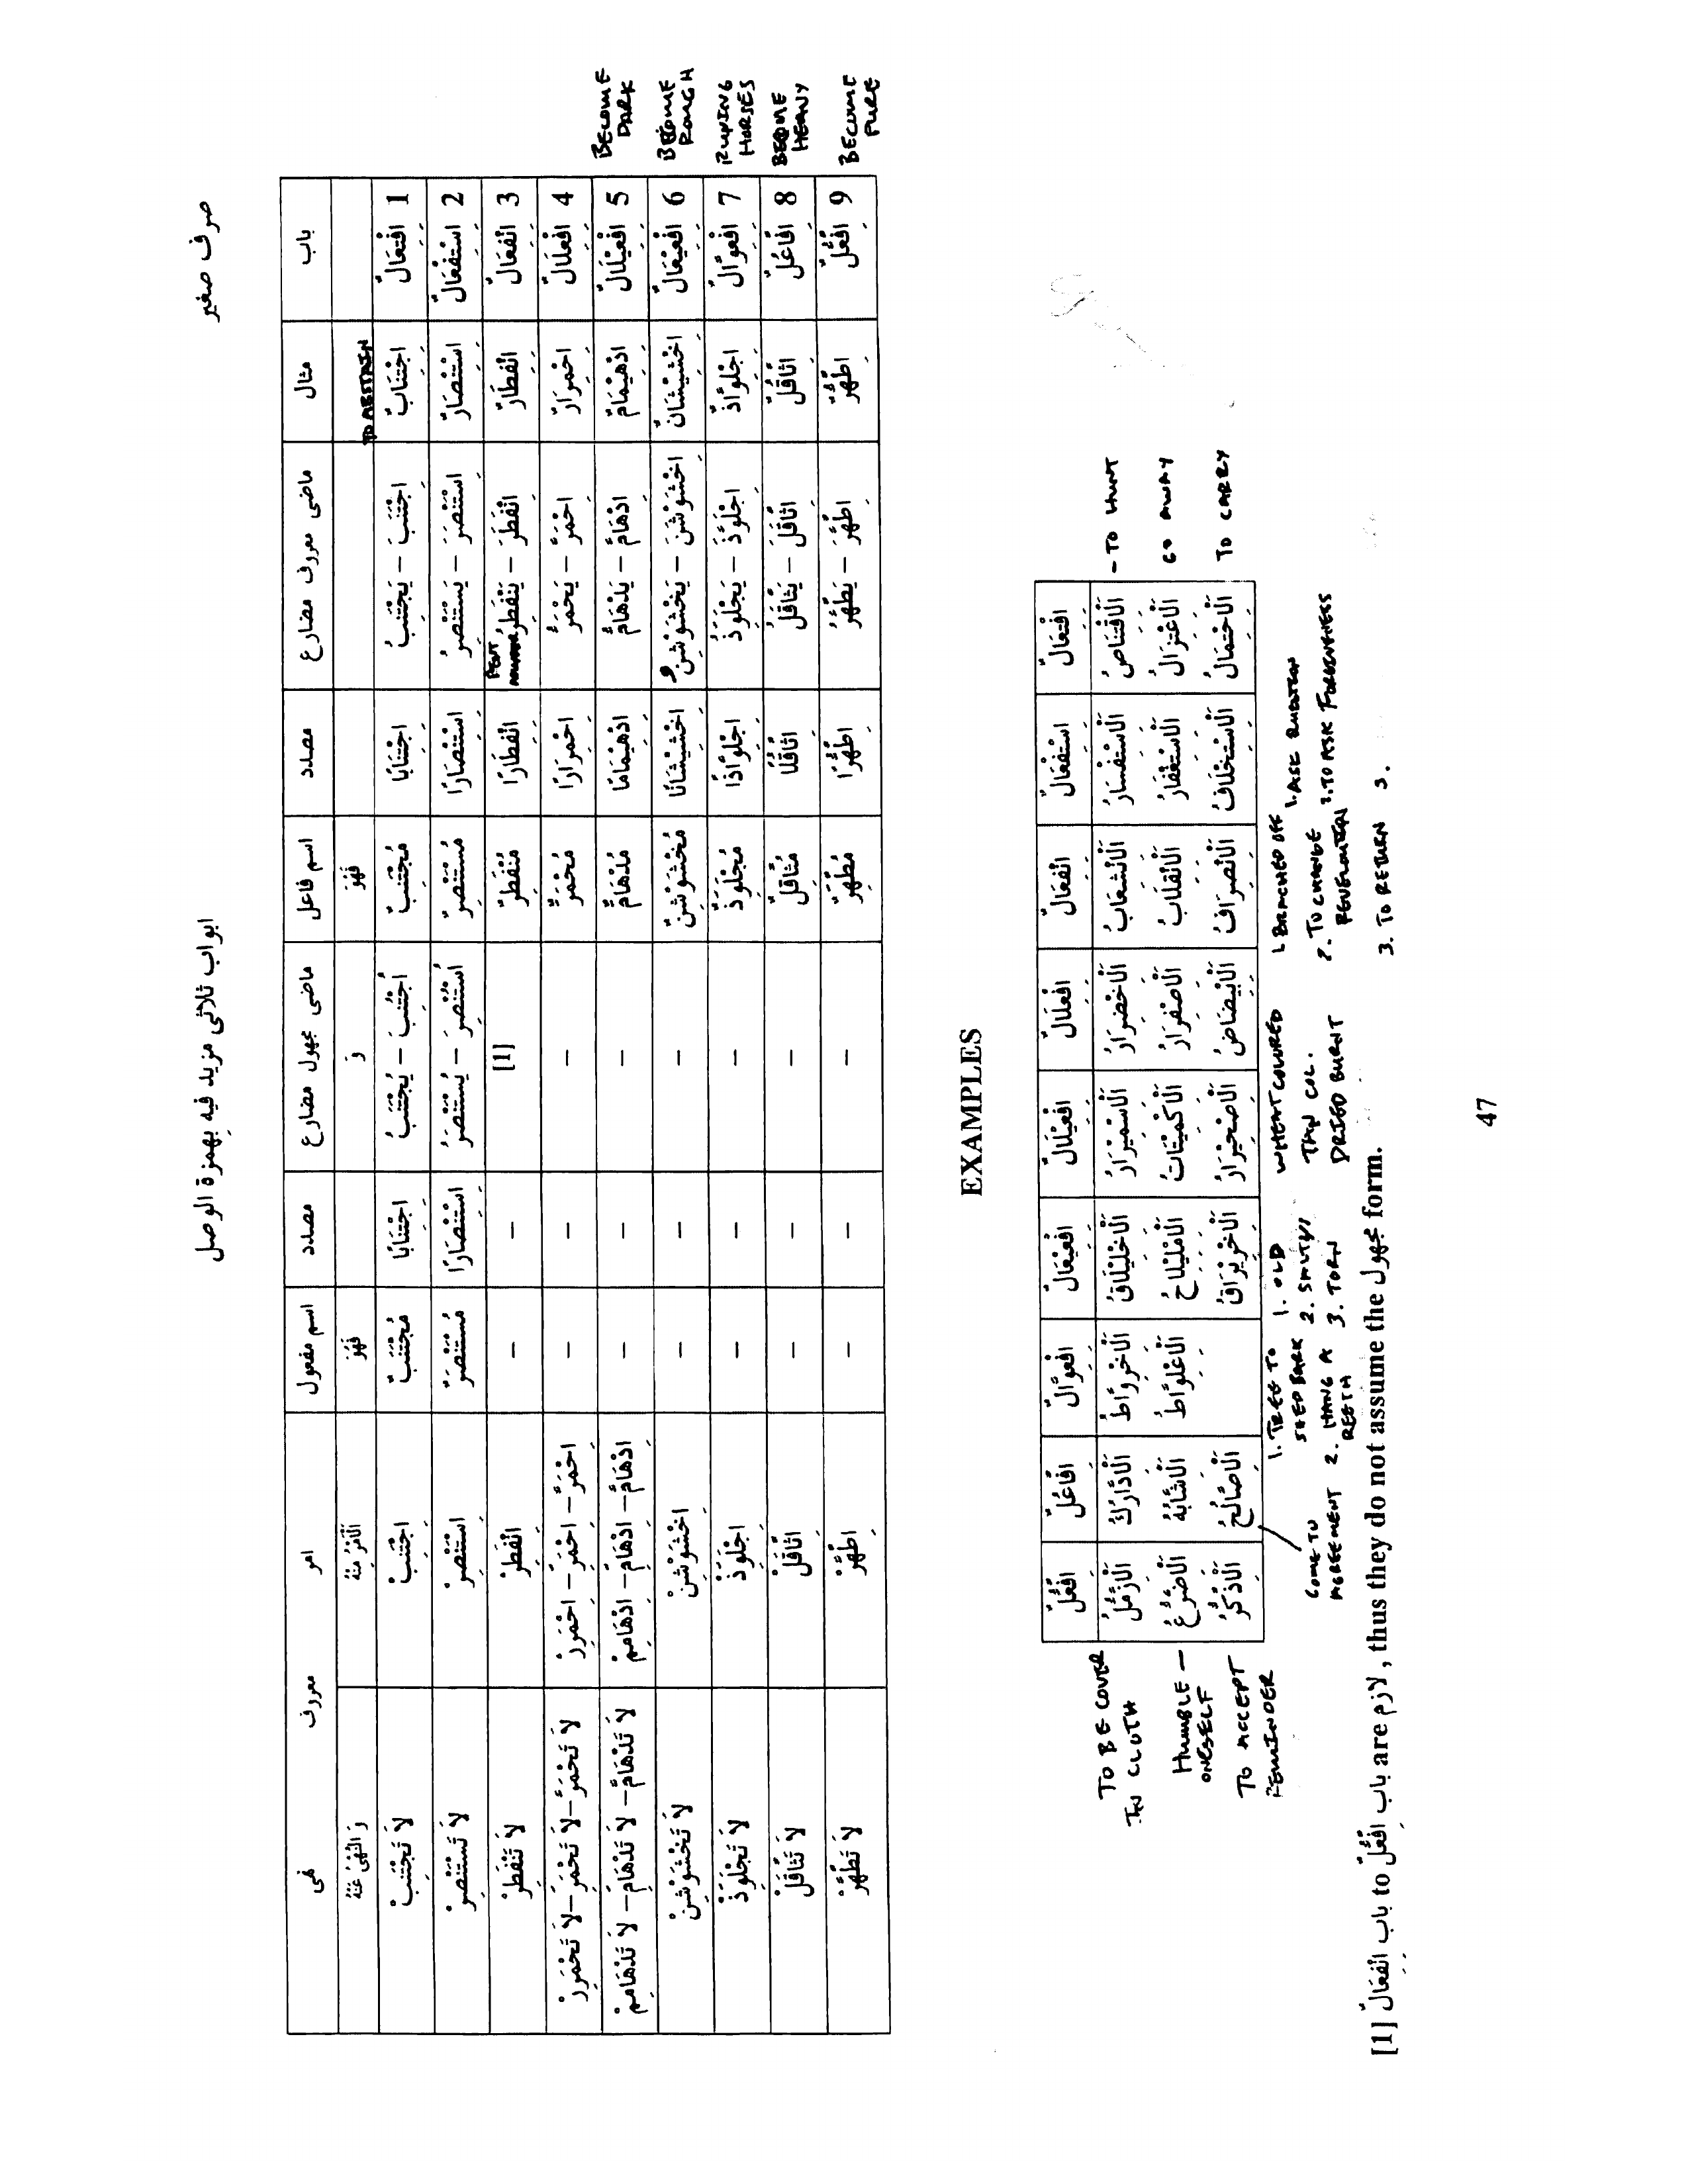 صرف صغير
ابواب ثلاثى مزيد فيه بهمزة الوصل
باب مثال ماضى معروف مضارع مصدر اسم فاعل ماضى مجهول مضارع مصدر اسم مفعول امر معروف نهى
فَهُوَ وَ فَهُوَ اَلْاَمْرُ مِنْهُ وَ النَّهْىُ عَنْهُ
TO ABSTAIN
1 اِفْتِعَالٌ اِجْتِنَابٌ اِجْتَنَبَ – يَجْتَنِبُ اِجْتِنَابًا مُجْتَنِبٌ اُجْتُنِبَ – يُجْتَنَبُ اِجْتِنَابًا مُجْتَنَبٌ اِجْتَنِبْ لَا تَجْتَنِبْ
2 اِسْتِفْعَالٌ اِسْتِنْصَارٌ اِسْتَنْصَرَ – يَسْتَنْصِرُ اِسْتِنْصَارًا مُسْتَنْصِرٌ اُسْتُنْصِرَ – يُسْتَنْصَرُ اِسْتِنْصَارًا مُسْتَنْصَرٌ اِسْتَنْصِرْ لَا تَسْتَنْصِرْ
3 اِنْفِعَالٌ اِنْفِطَارٌ اِنْفَطَرَ – يَنْفَطِرُ اِنْفِطَارًا مُنْفَطِرٌ [1] – – اِنْفَطِرْ لَا تَنْفَطِرْ
4 اِفْعِلَالٌ اِحْمِرَارٌ اِحْمَرَّ – يَحْمَرُّ اِحْمِرَارًا مُحْمَرٌّ – – – اِحْمَرَّ – اِحْمَرِّ – اِحْمَرِرْ لَا تَحْمَرَّ – لَا تَحْمَرِّ – لَا تَحْمَرِرْ
5 اِفْعِيْلَالٌ اِدْهِيْمَامٌ اِدْهَامَّ – يَدْهَامُّ اِدْهِيْمَامًا مُدْهَامٌّ – – – اِدْهَامَّ – اِدْهَامِّ – اِدْهَامِمْ لَا تَدْهَامَّ – لَا تَدْهَامِّ – لَا تَدْهَامِمْ
BECOME DARK
6 اِفْعِيْعَالٌ اِخْشِيْشَانٌ اِخْشَوْشَنَ – يَخْشَوْشِنُ اِخْشِيْشَانًا مُخْشَوْشِنٌ – – – اِخْشَوْشِنْ لَا تَخْشَوْشِنْ
BECOME ROUGH
7 اِفْعِوَّالٌ اِجْلِوَّاذٌ اِجْلَوَّذَ – يَجْلَوِّذُ اِجْلِوَّاذًا مُجْلَوِّذٌ – – – اِجْلَوِّذْ لَا تَجْلَوِّذْ
RUNING HORSES
8 اِفَّاعُلٌ اِثَّاقُلٌ اِثَّاقَلَ – يَثَّاقَلُ اِثَّاقُلًا مُثَّاقِلٌ – – – اِثَّاقَلْ لَا تَثَّاقَلْ
BECOME HEAVY
9 اِفَّعُّلٌ اِطَّهُّرٌ اِطَّهَّرَ – يَطَّهَّرُ اِطَّهُّرًا مُطَّهِّرٌ – – – اِطَّهَّرْ لَا تَطَّهَّرْ
BECOME PURE
EXAMPLES
اِفْتِعَالٌ اِسْتِفْعَالٌ اِنْفِعَالٌ اِفْعِلَالٌ اِفْعِيْلَالٌ اِفْعِيْعَالٌ اِفْعِوَّالٌ اِفَّاعُلٌ اِفَّعُّلٌ
اَلْاِقْتِنَاصُ اَلْاِسْتِفْسَارُ اَلْاِنْشِعَابُ اَلْاِخْضِرَارُ اَلْاِسْمِيْرَارُ اَلْاِخْلِيْلَاقُ اَلْاِخْرِوَّاطُ اَلْاِدَّارُكُ اَلْاِزَّمُّلُ
اَلْاِعْتِزَالُ اَلْاِسْتِغْفَارُ اَلْاِنْقِلَابُ اَلْاِصْفِرَارُ اَلْاِكْمِيْتَاتُ اَلْاِمْلِيْلَاحُ اَلْاِعْلِوَّاطُ اَلْاِشَّابُهُ اَلْاِضَّرُّعُ
اَلْاِحْتِمَالُ اَلْاِسْتِخْلَافُ اَلْاِنْصِرَافُ اَلْاِبْيِضَاضُ اَلْاِصْحِيْرَارُ اَلْاِخْرِيْرَاقُ اَلْاِصَّالُحُ اَلْاِذَّكُّرُ
- TO HUNT
GO AWAY
TO CARRY
2. TO ASK FORGIVENESS
3.
1. BRANCHED OFF
2. TO CHANGE
3. TO RETURN
WHEAT COLOURED
TAN COL.
DRIED BURNT
1. OLD
2. SALTY
3. TORN
1. TREE TO SHED BARK
2. HANG A
COME TO AGREEMENT
TO BE COVER IN CLOTH
HUMBLE – ONESELF
TO ACCEPT REMINDER
[1] باب اِنْفِعَالٌ to باب اِفَّعُّلٌ are لازم, thus they do not assume the مجهول form.
47